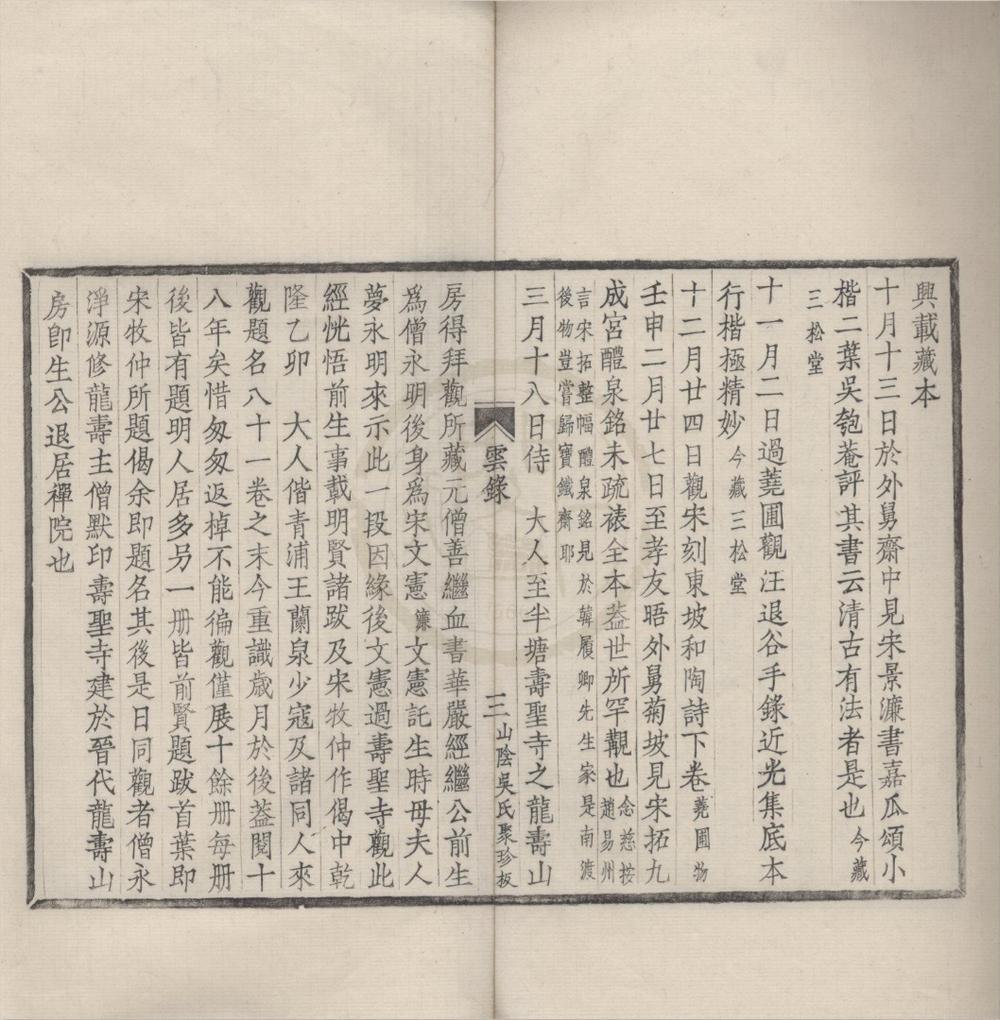 興載藏本
十月十三日於外舅齋中見宋景濂書嘉瓜頌小
楷二葉吳匏菴評其書云清古有法者是也今藏
三松堂
十一月二日過蕘圃觀汪退谷手錄近光集底本
行楷極精妙今藏三松堂
十二月廿四日觀宋刻東坡和陶詩下卷蕘圃物
壬申二月廿七日至孝友晤外舅菊坡見宋拓九
成宮醴泉銘未疏裱全本葢世所罕覯也念慈按趙易州
言宋拓整幅醴泉銘見於韓履卿先生家是南渡
後物豈嘗歸寶鐵齋耶
三月十八日侍　大人至半塘壽聖寺之龍壽山
雲錄
三
山陰吳氏聚珍板
房得拜觀所藏元僧善繼血書華嚴經繼公前生
爲僧永明後身爲宋文憲濂文憲託生時母夫人
夢永明來示此一段因緣後文憲過壽聖寺觀此
經恍悟前生事載明賢諸跋及宋牧仲作偈中乾
隆乙卯　大人偕青浦王蘭泉少寇及諸同人來
觀題名八十一卷之末今重識歲月於後葢閱十
八年矣惜匆匆返棹不能徧觀僅展十餘册每册
後皆有題明人居多另一册皆前賢題跋首葉即
宋牧仲所題偈余即題名其後是日同觀者僧永
淨源修龍壽主僧默印壽聖寺建於晉代龍壽山
房卽生公退居禪院也